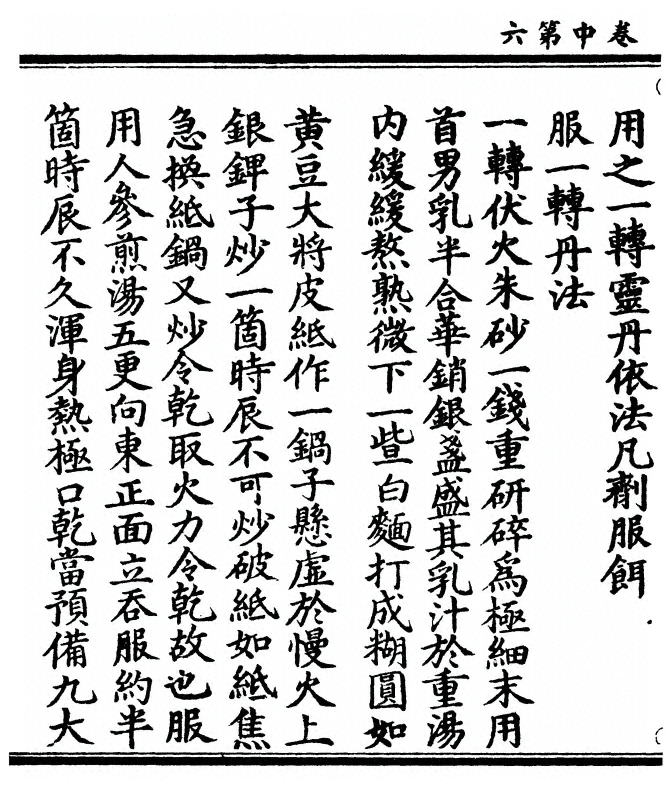 卷中第六
用之一轉靈丹依法凡劑服餌
服一轉丹法
一轉伏火朱砂一錢重研碎爲極細末用
首男乳半合華銷銀盞盛其乳汁於重湯
内緩緩熬熟微下一些白麵打成糊圓如
黄豆大將皮紙作一鍋子懸虛於慢火上
銀鎞子炒一箇時辰不可炒破紙如紙焦
急換紙鍋又炒令乾取火力令乾故也服
用人參煎湯五更向東正面立吞服約半
箇時辰不久渾身熱極口乾當預備九大